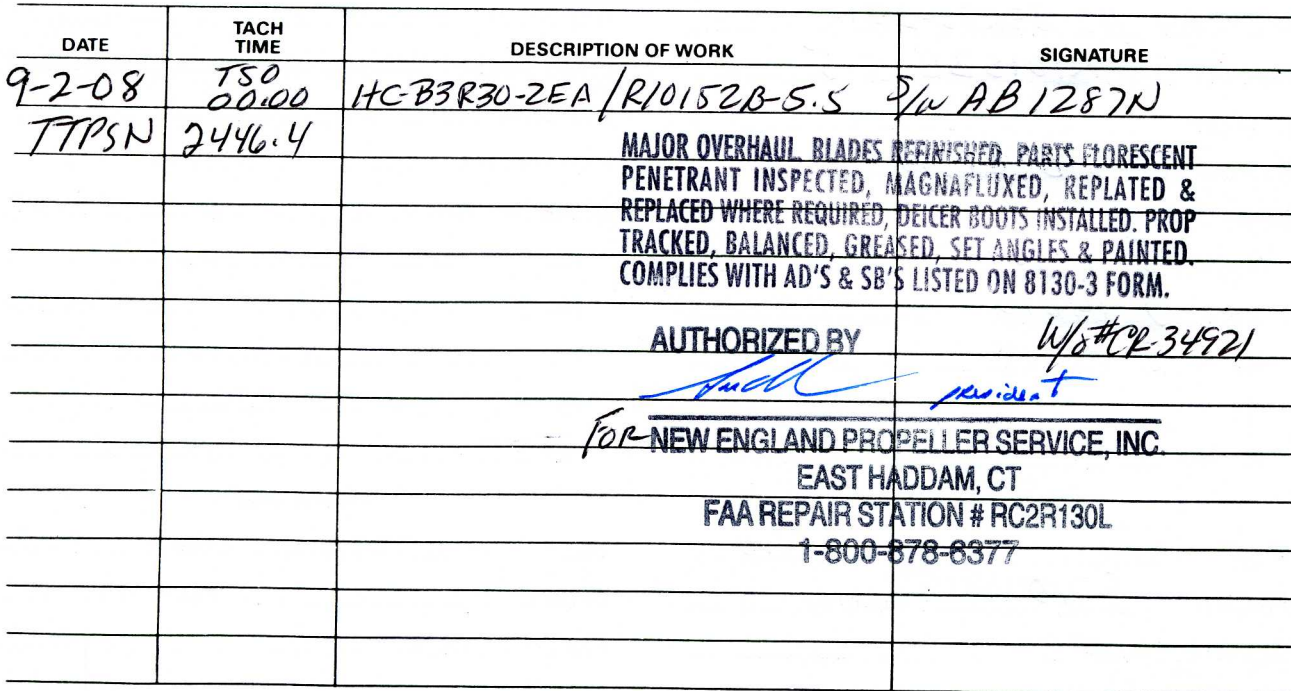 DATE TACH TIME DESCRIPTION OF WORK SIGNATURE
9-2-08 TSO 00.00 HC-B3R30-2EA/R10152B-5.5 S/N AB1287N
TTPSN 2446.4
MAJOR OVERHAUL. BLADES REFINISHED. PARTS FLORESCENT
PENETRANT INSPECTED, MAGNAFLUXED, REPLATED &
REPLACED WHERE REQUIRED, DEICER BOOTS INSTALLED. PROP
TRACKED, BALANCED, GREASED, SET ANGLES & PAINTED.
COMPLIES WITH AD'S & SB'S LISTED ON 8130-3 FORM.
AUTHORIZED BY W/O#CR-34921
president
FOR NEW ENGLAND PROPELLER SERVICE, INC.
EAST HADDAM, CT
FAA REPAIR STATION # RC2R130L
1-800-878-6377